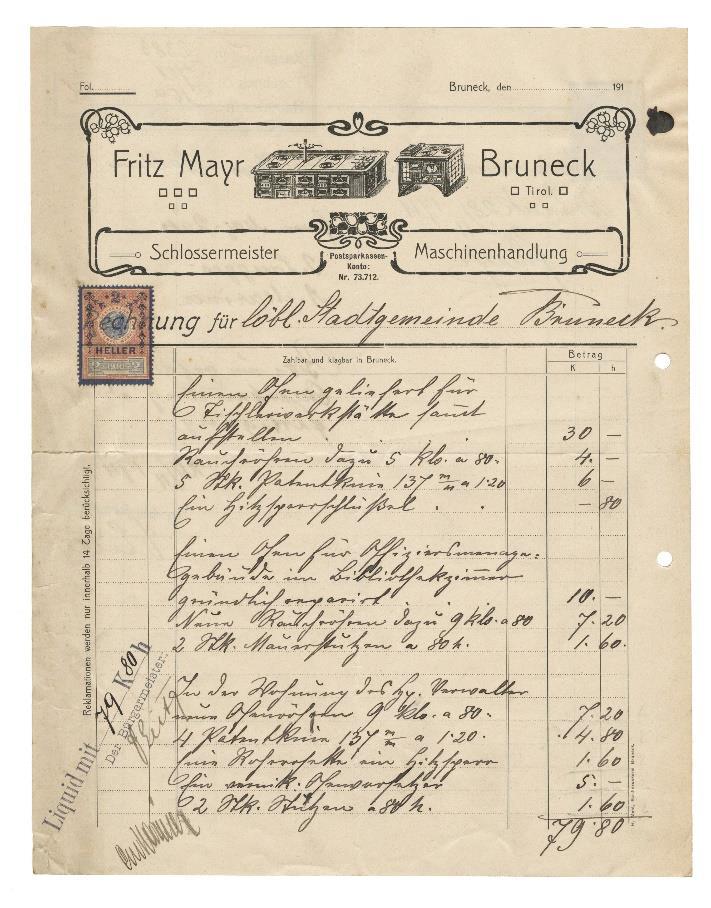 Fol.
Bruneck, den 191
Fritz Mayr Bruneck
Tirol.
Schlossermeister Maschinenhandlung
Postsparkassen-
Konto:
Nr. 73.712.
Rechnung für löbl. Stadtgemeinde Bruneck.
2
HELLER
Zahlbar und klagbar in Bruneck.
Betrag
K h
Einen Ofen geliefert für
Tischlerwerkstätte samt
aufstellen 30 —
Rauchröhren dazu 5 klo. a 80. 4. —
5 Stk. Patentknie 137 m/m a 1.20 6 —
Ein Hitzsperrschlüßel . . — 80
Einen Ofen für Offiziersmenage-
gebäude im Bibliothekzimmer
gründlich reparirt 10. —
Neue Rauchröhren dazu 9 klo. a 80 7. 20
2 Stk. Mauerstutzen a 80 h. 1. 60.
In der Wohnung des Hr. Verwalter
neue Ofenröhren 9 klo. a 80. 7. 20
4 Patentknie 137 m/m a 1.20. 4. 80
Eine Rohrrosette ein Hitzsperr 1. 60
Ein vernik. Ofenvorsetzer 5. —
2 Stk. Stutzen a 80 h. 1. 60
79. 80
Reklamationen werden nur innerhalb 14 Tage berücksichtigt.
Liquid mit 79 K 80 h
Der Bürgermeister: